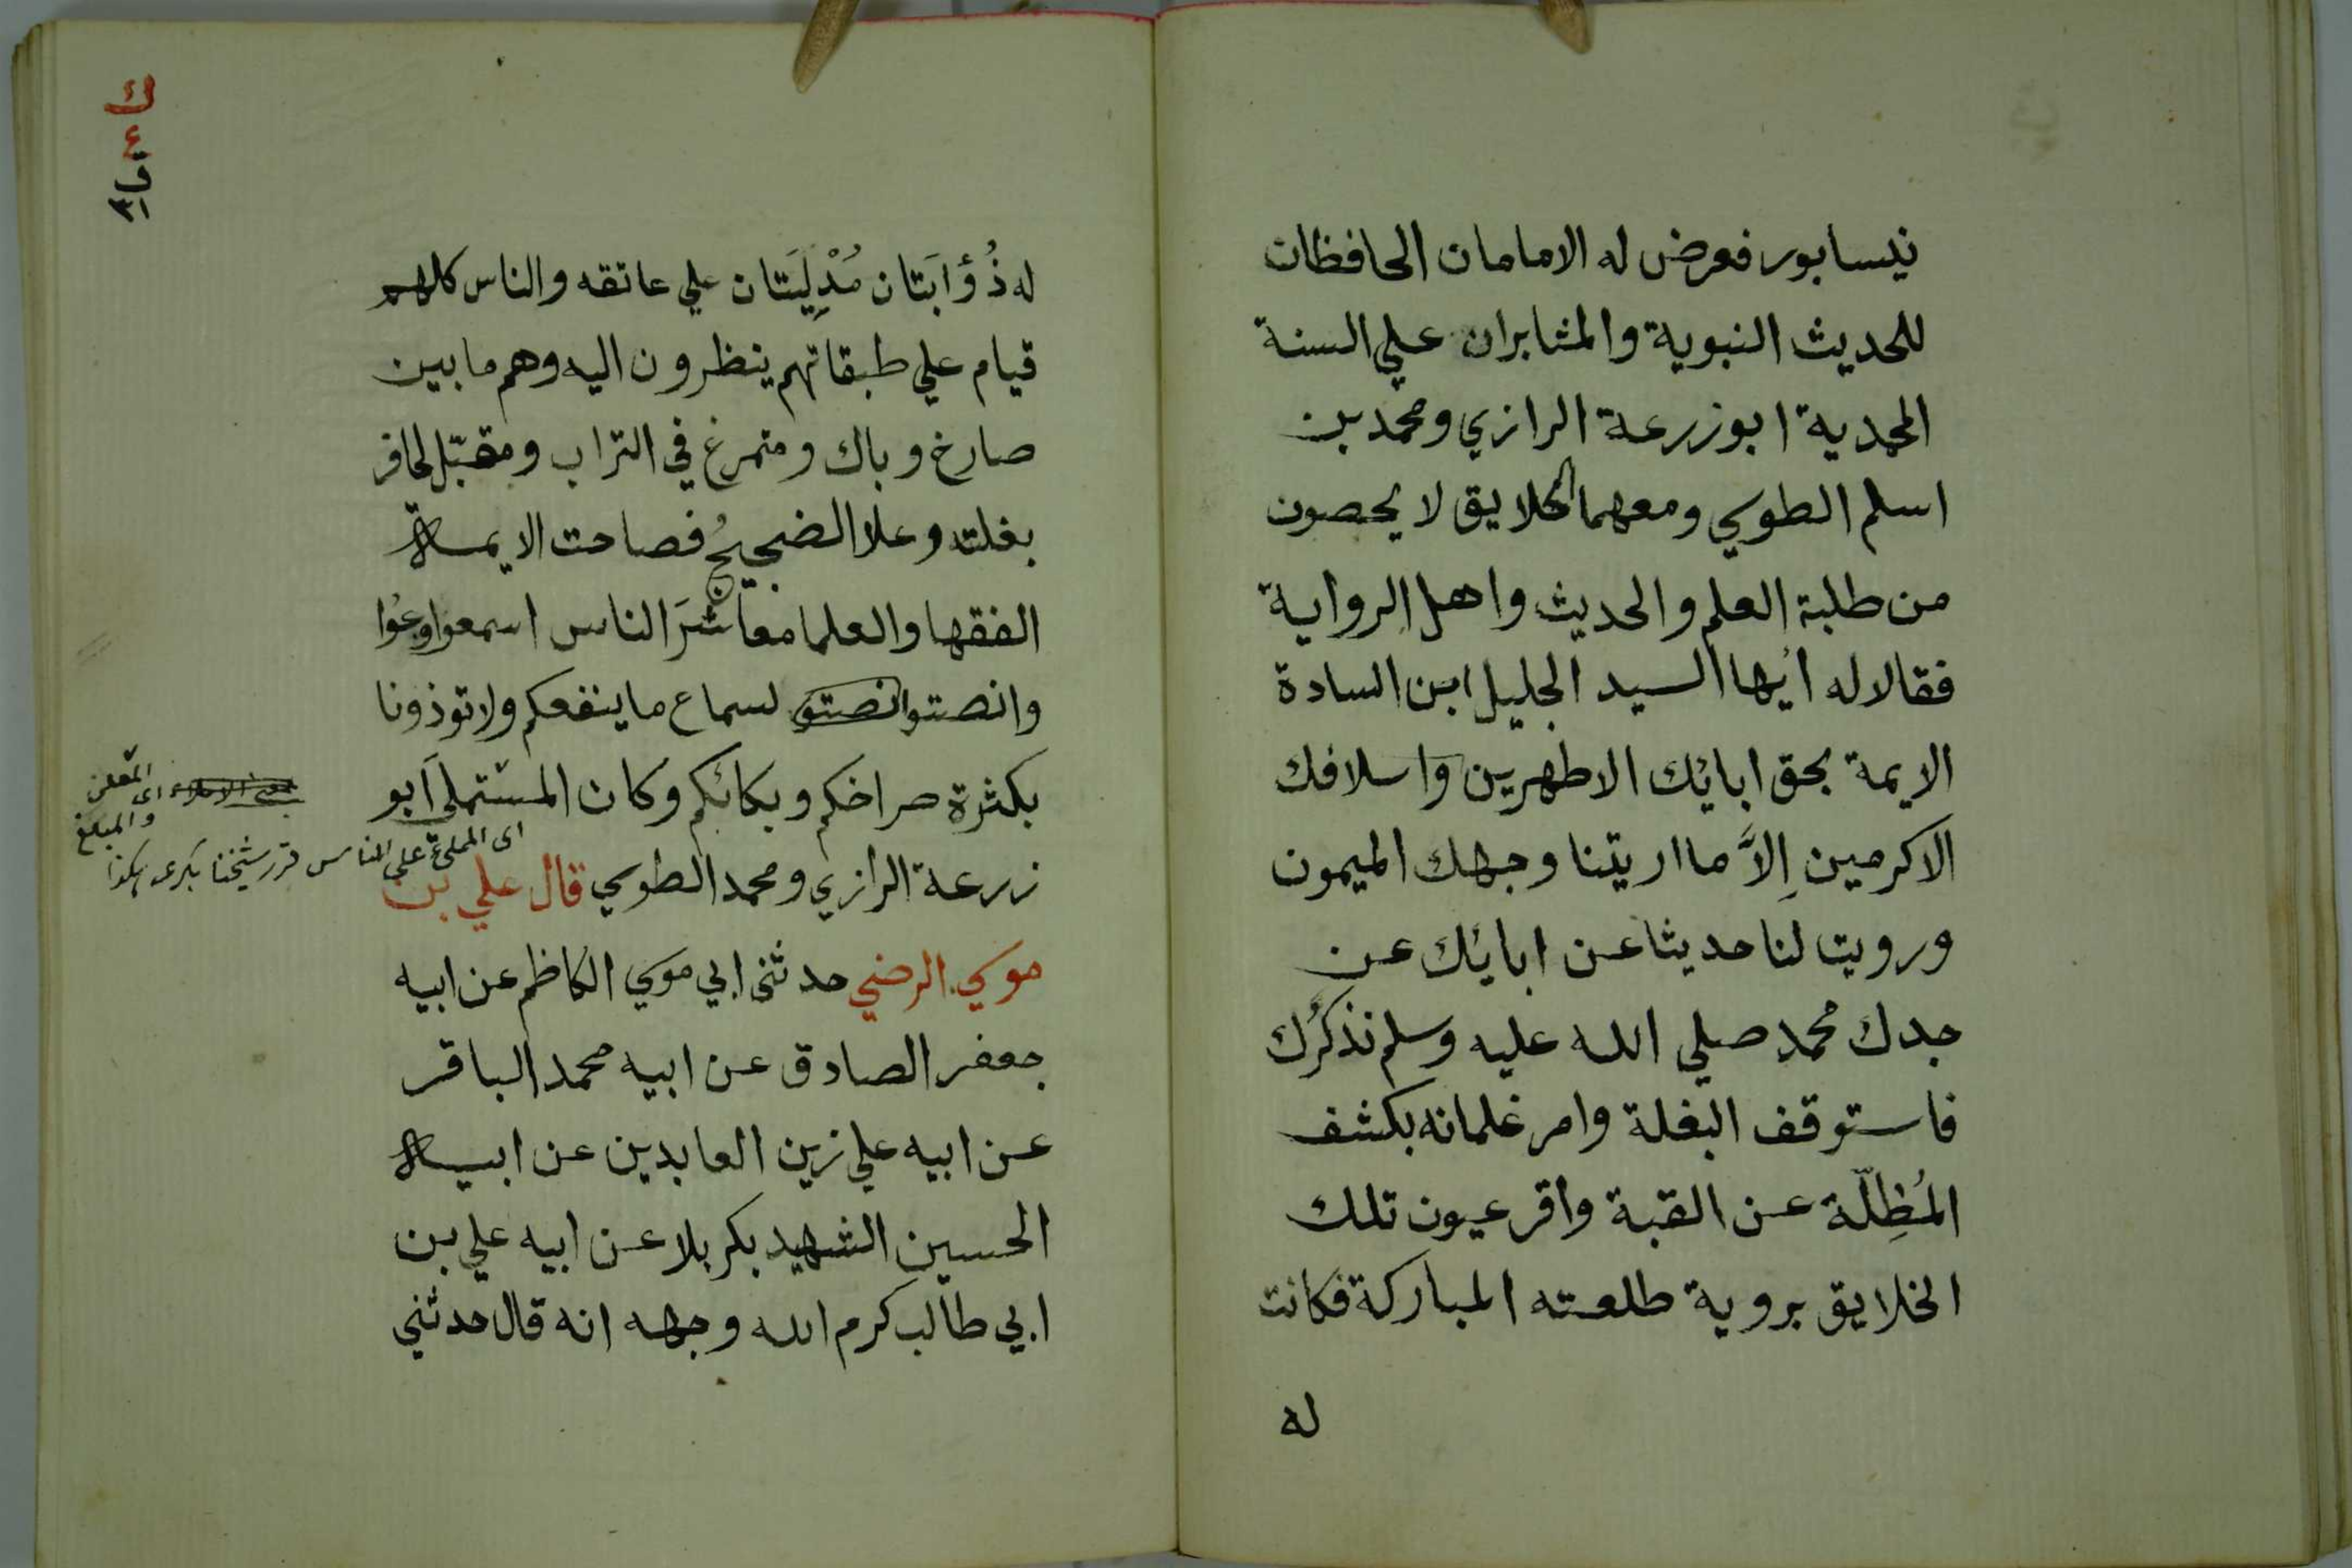 نيسابور فعرض له الامامان الحافظان
للحديث النبوية والمثابران علي السنة
المحمدية ابو زرعة الرازي ومحمد بن
اسلم الطوسي ومعهما الخلايق لا يحصون
من طلبة العلم والحديث واهل الرواية
فقالا له ايُها السيد الجليل ابن السادة
الايمة بحق ابائك الاطهرين واسلافك
الاكرمين اِلاَّ ما اريتنا وجهك الميمون
ورويت لنا حديثا عن ابائك عن
جدك محمد صلي الله عليه وسلم نذكُرك
فاستوقف البغلة وامر غلمانه بكشف
المُظِلّة عن القبة واقر عيون تلك
الخلايق بروية طلعته المباركة فكانت
له
ك
٤
له ذُؤابَتان مُدْلِيَتان علي عاتقه والناس كلهم
قيام علي طبقاتهم ينظرون اليه وهم ما بين
صارخ وباك ومتمرغ في التراب ومقبّل لحافر
بغلته وعلا الضجيجُ فصاحت الايمة
الفقها والعلما معاشرَ الناس اسمعوا وعُوا
وانصتوا انصتو لسماع ما ينفعكم ولا توذونا
بكثرة صراخكم وبكائكم وكان المستملي ابو
زرعة الرازي ومحمد الطوسي قال علي بن
موسي الرضي حدثنى ابي موسي الكاظم عن ابيه
جعفر الصادق عن ابيه محمد الباقر
عن ابيه علي زين العابدين عن ابيه
الحسين الشهيد بكربلا عن ابيه علي بن
ابي طالب كرم الله وجهه انه قال حدثني
اى المعلن
والمبلغ
اى المملئ على الناس قرر شيخنا بكرى هكذا